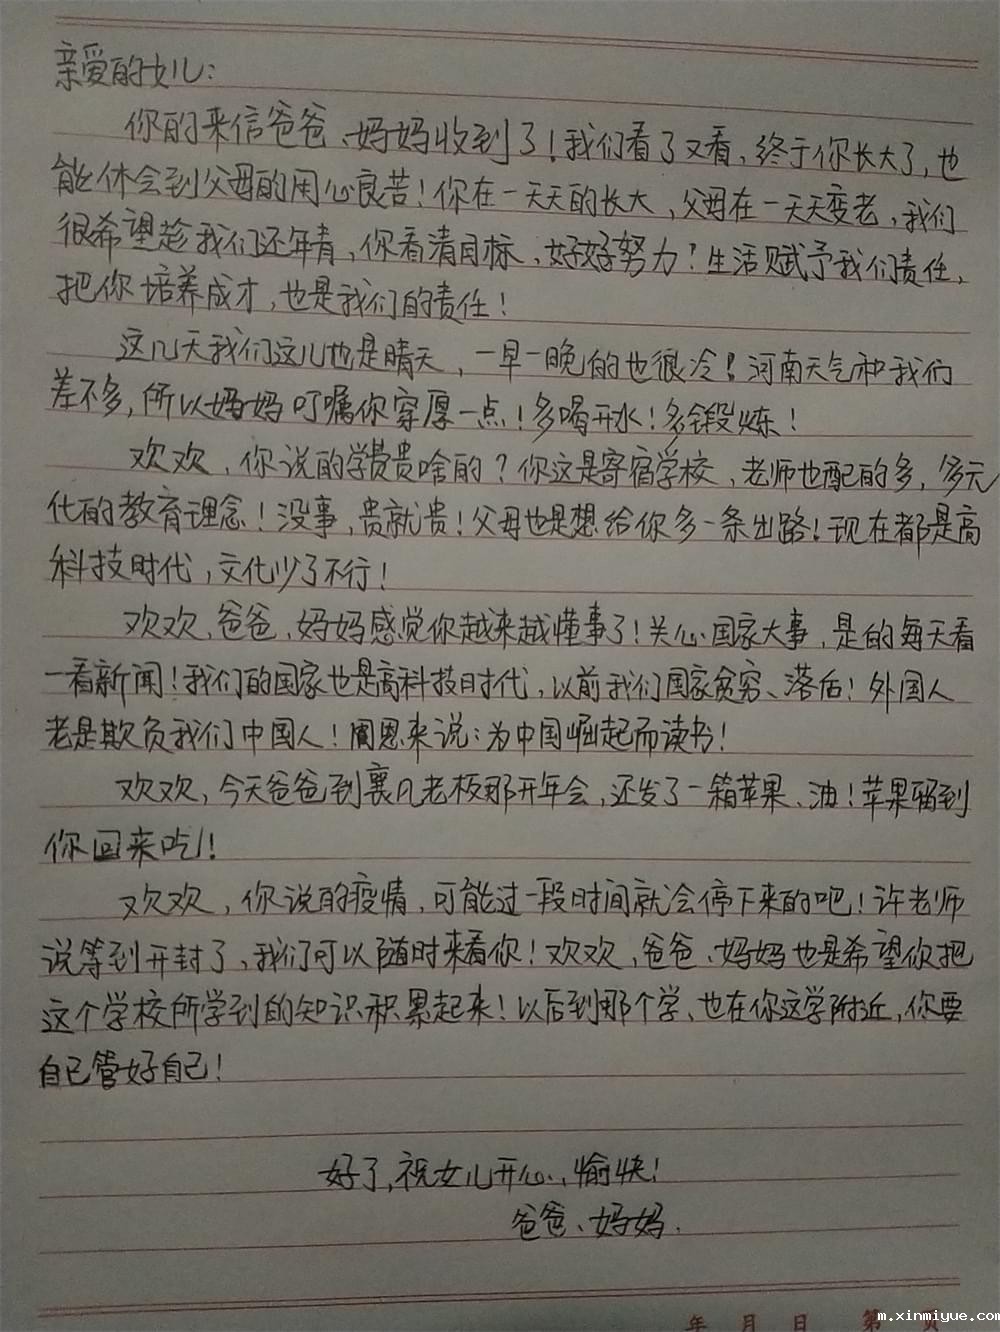 亲爱的女儿:
你的来信爸爸、妈妈收到了!我们看了又看、终于你长大了,也
能体会到父母的用心良苦!你在一天天的长大,父母在一天天变老,我们
很希望趁我们还年青,你看清目标、好好努力?生活赋予我们责任,
把你培养成才,也是我们的责任!
这几天我们这儿也是晴天,一早一晚的也很冷!河南天气和我们
差不多,所以妈妈叮嘱你穿厚一点!多喝开水!多锻炼!
欢欢,你说的学费贵啥的?你这是寄宿学校、老师也配的多,多元
化的教育理念!没事,贵就贵!父母也是想给你多一条出路!现在都是高
科技时代,文化少了不行!
欢欢、爸爸、妈妈感觉你越来越懂事了!关心国家大事,是的每天看
一看新闻!我们的国家也是高科技时代,以前我们国家贫穷、落后!外国人
老是欺负我们中国人!周恩来说:为中国崛起而读书!
欢欢,今天爸爸到襄凡老板那开年会,还发了一箱苹果、油!苹果留到
你回来吃!
欢欢,你说的疫情,可能过一段时间就会停下来的吧!许老师
说等到开封了、我们可以随时来看你!欢欢,爸爸、妈妈也是希望你把
这个学校所学到的知识积累起来!以后到那个学、也在你这学附近,你要
自己管好自己!
好了,祝女儿开心、愉快!
爸爸、妈妈.
年 月 日 第 页
m.xinmiyue.com